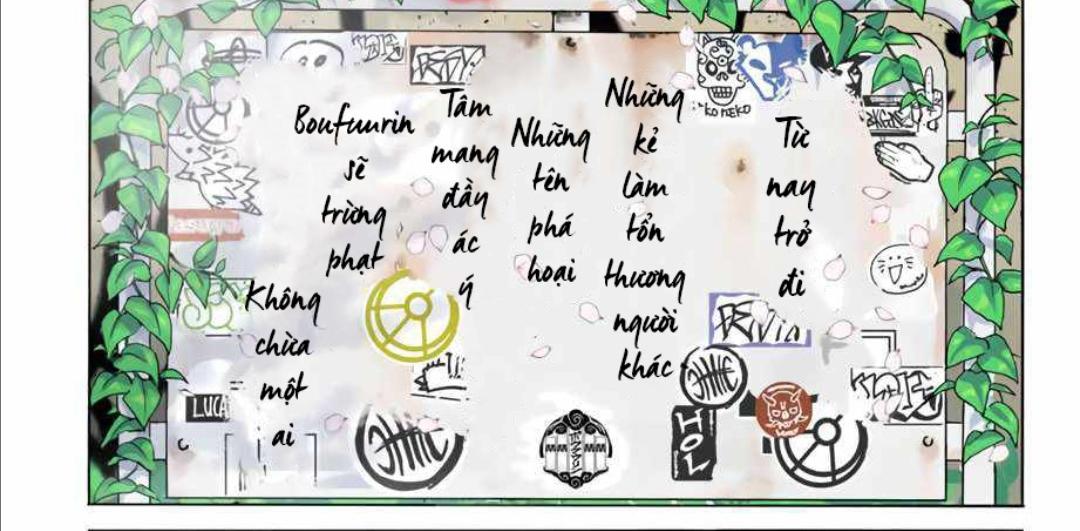 Từ
nay
trở
đi
Những
kẻ
làm
tổn
thương
người
khác
Những
tên
phá
hoại
Tâm
mang
đầy
ác
ý
Boufuurin
sẽ
trừng
phạt
Không
chừa
một
ai
KO NEKO
LUCA
HOL